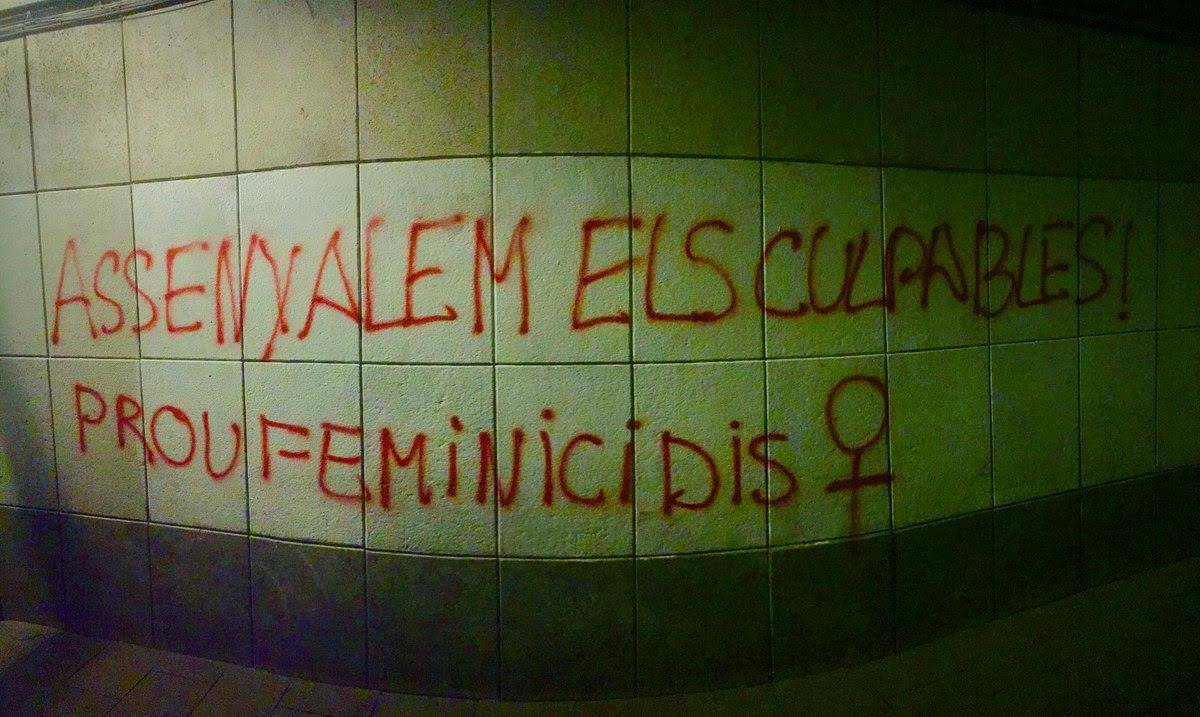 ASSENYALEM ELS CULPABLES!
PROU FEMiNiCiDiS ♀